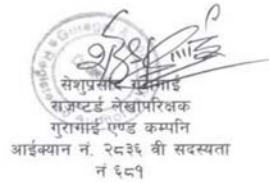 सेशुप्रसाद गुरागाई
राजष्टर्ड लेखापरिक्षक
गुरागाई एण्ड कम्पनि
आईक्यान नं. २८३६ वी सदस्यता
नं ६८१